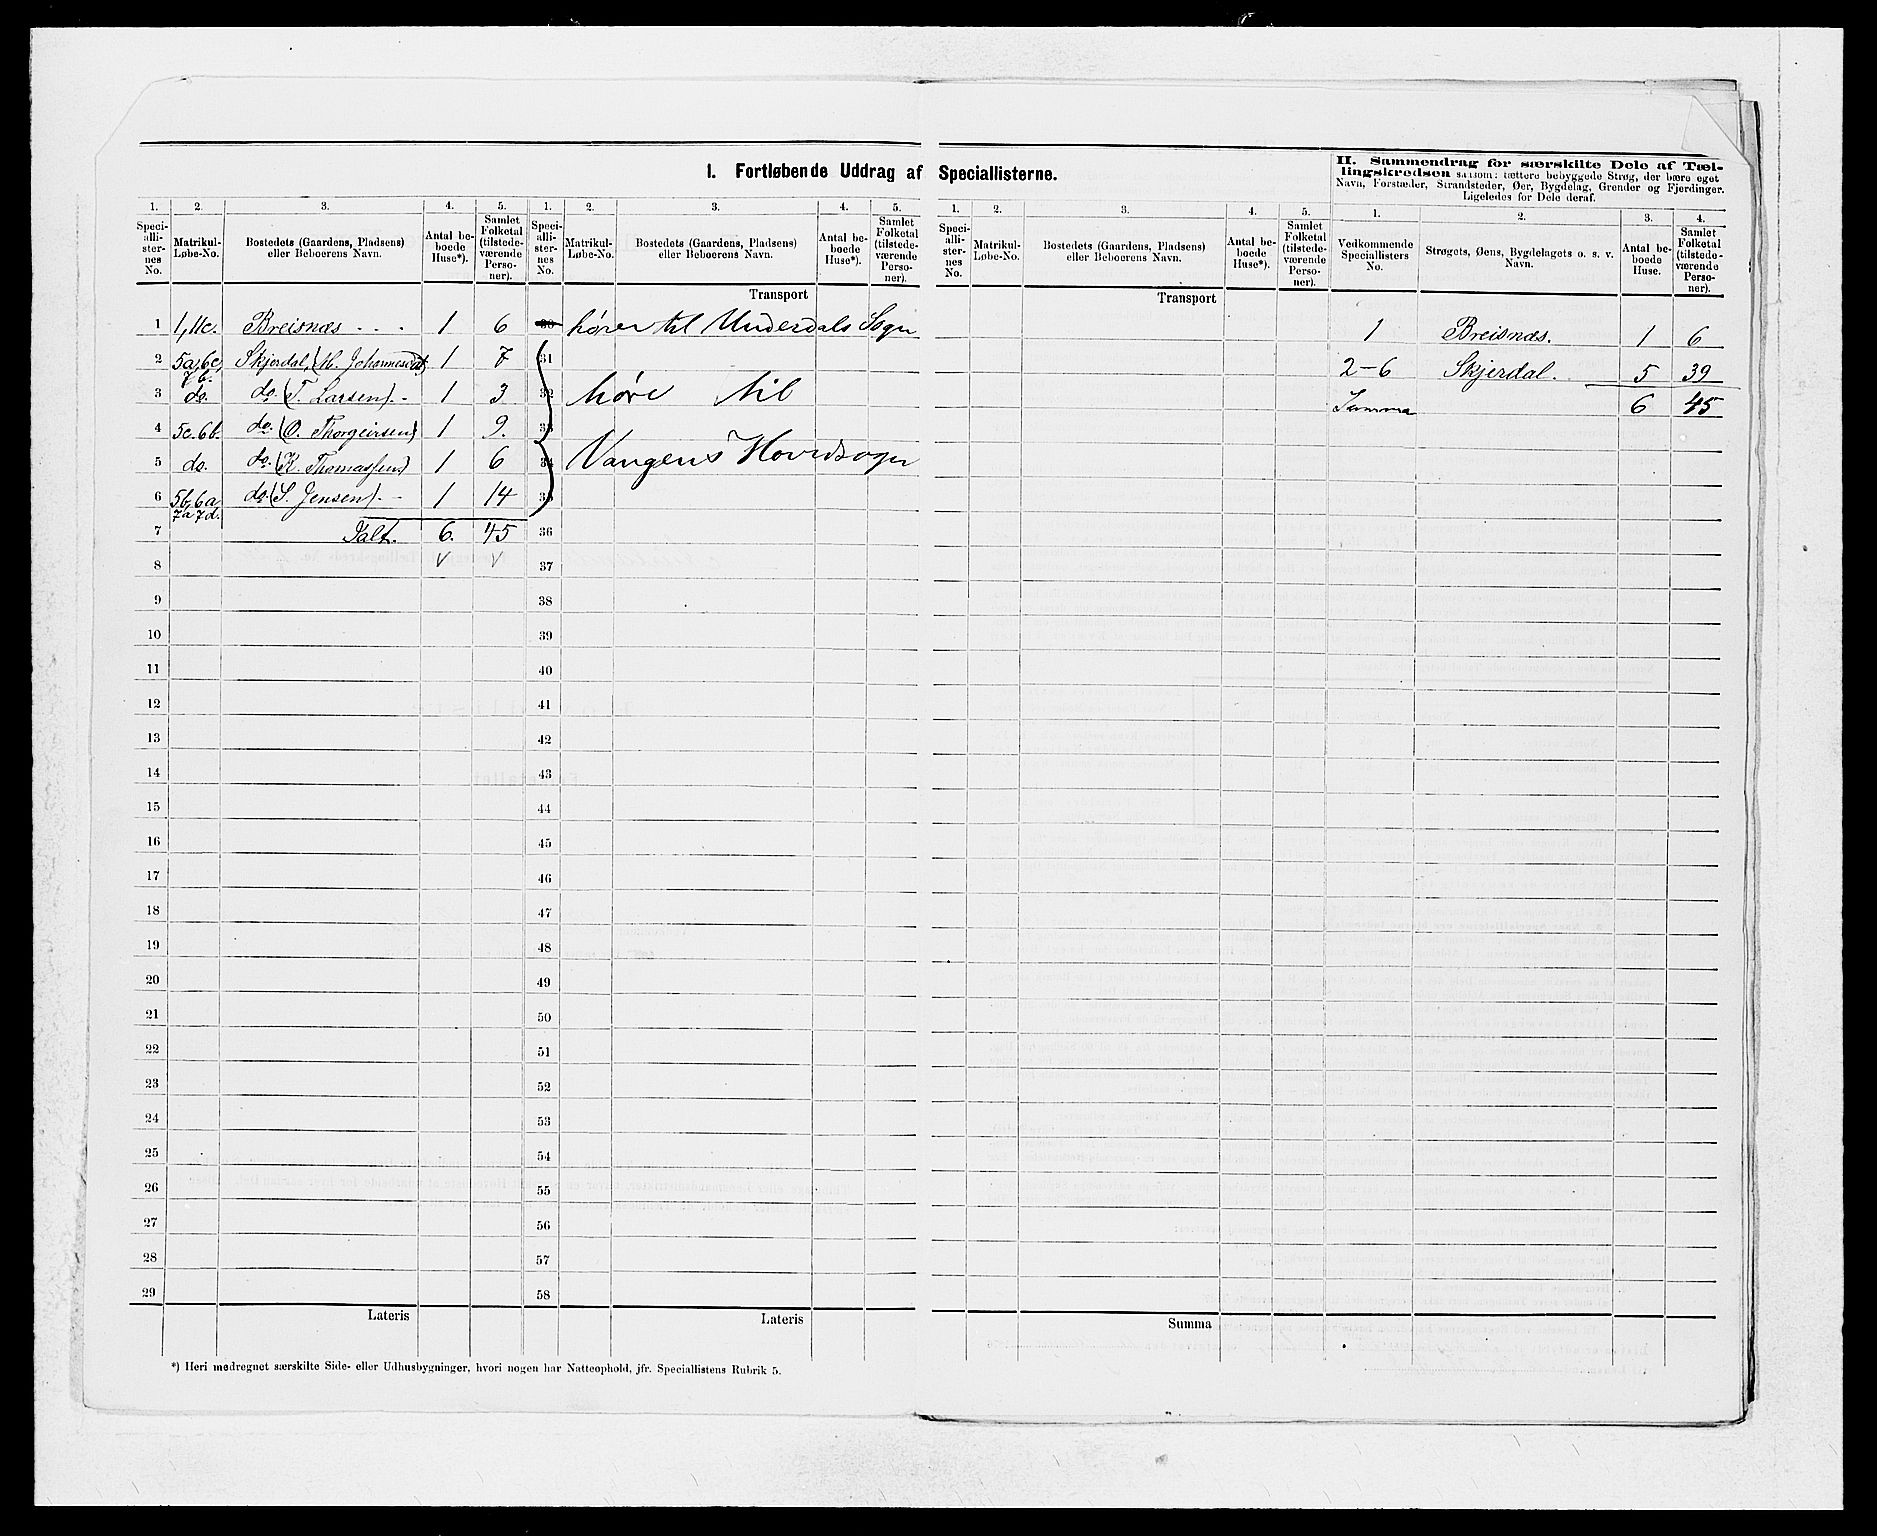 I. Fortløbende Uddrag af Speciallisterne.
II. Sammendrag for særskilte Dele af Tæl-
lingskredsen saasom: tættere bebyggede Strøg, der bære eget
Navn, Forstæder, Strandsteder, Øer, Bygdelag, Grender og Fjerdinger.
Ligeledes for Dele deraf.
1. 2. 3. 4. 5. 1. 2. 3. 4. 5. 1. 2. 3. 4. 5. 1. 2. 3. 4.
Speci-alli-ster-nes No. Matrikul-Løbe-No. Bostedets (Gaardens, Pladsens) eller Beboerens Navn. Antal be-boede Huse*). Samlet Folketal (tilstede-værende Perso-ner).
Speci-alli-ster-nes No. Matrikul-Løbe-No. Bostedets (Gaardens, Pladsens) eller Beboerens Navn. Antal be-boede Huse*). Samlet Folketal (tilstede-værende Perso-ner).
Speci-alli-ster-nes No. Matrikul-Løbe-No. Bostedets (Gaardens, Pladsens) eller Beboerens Navn. Antal be-boede Huse*). Samlet Folketal (tilstede-værende Perso-ner).
Vedkommende Speciallisters No. Strøgets, Øens, Bygdelagets o. s. v. Navn. Antal be-boede Huse. Samlet Folketal (tilstede-værende Perso-ner).
Transport Transport
1 1, 11c. Breisnæs - - - 1 6 30 hører til Underdals Sogn
2 5a, 6c, 7b. Skjerdal, 1 7 31
3 do. do. (T. Larsen) - 1 3 32 høre til
4 5c. 6b. do. (O. Thorgeirsen) 1 9. 33
5 do. do. (K. Thomassen) 1 6 34 Vangens Hovedsogn
6 5b, 6a 7a 7d. do. (S. Jensen) - - 1 14 35
7 Ialt. 6. 45 36
8 37
9 38
10 39
11 40
12 41
13 42
14 43
15 44
16 45
17 46
18 47
19 48
20 49
21 50
22 51
23 52
24 53
25 54
26 55
27 56
28 57
29 58
Lateris Lateris Summa
1 Breisnæs. 1 6
2-6 Skjerdal. 5 39
Summa 6 45
*) Heri medregnet særskilte Side- eller Udhusbygninger, hvori nogen har Natteophold, jfr. Speciallistens Rubrik 5.